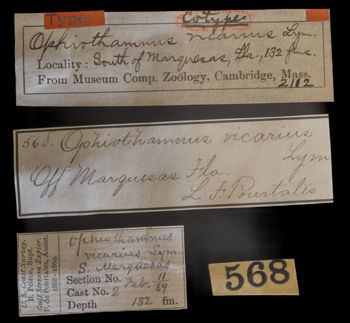 Type. Cotypes
Ophiothamnus vicarius Lym.
Locality: South of Marquesas, Fla., 132 fms.
From Museum Comp. Zoology, Cambridge, Mass.
2112
568. Ophiothamnus vicarius
Lym
Off Marquesas Fla.
L. F. Pourtales
U. S. Coast Survey.
B. Peirce, Supt.
Gulf Stream Explor.
F. de Pourtales, Assist.
1868-1869.
Ophiothamnus
vicarius Lym
S. Marquesas
Section No. 11
Cast No. 2 Feb. 69
Depth 132 fm.
568